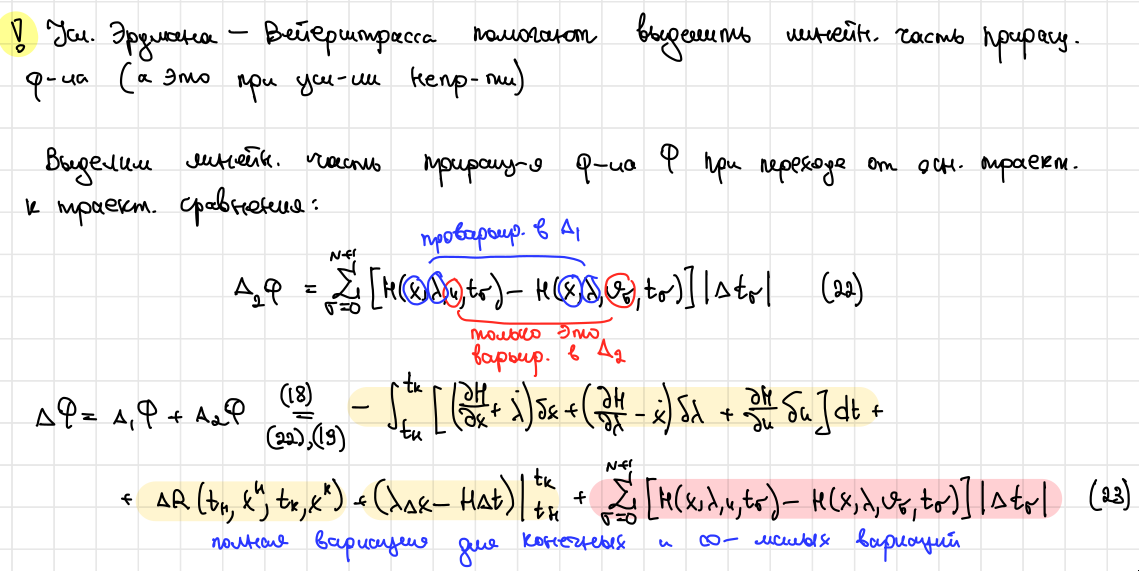 ! Усл. Эрдмана – Вейерштрасса помогают выделить линейн. часть приращ.
ф-ла (а это при усл-ии непр-ти)
Выделим линейн. часть приращ-я ф-ла Φ при переходе от осн. траект.
к траект. сравнения:
проварьир. в Δ₁
Δ₂φ = ∑_{σ=0}^{N+1} [H(x,λ,u,t_σ) – H(x,λ,v_σ,t_σ)] |Δt_σ| (22)
только это
варьир. в Δ₂
Δφ = Δ₁φ + Δ₂φ (18) = (22),(19) – ∫_{tн}^{tк} [(∂H/∂x + λ̇)δx + (∂H/∂λ – ẋ)δλ + ∂H/∂u δu] dt +
+ ΔR(tн, xᴴ, tк, xᴷ) + (λΔx – HΔt)|_{tн}^{tк} + ∑_{σ=0}^{N+1} [H(x,λ,u,t_σ) – H(x,λ,v_σ,t_σ)] |Δt_σ| (23)
полная вариация для конечных и ∞-малых вариаций